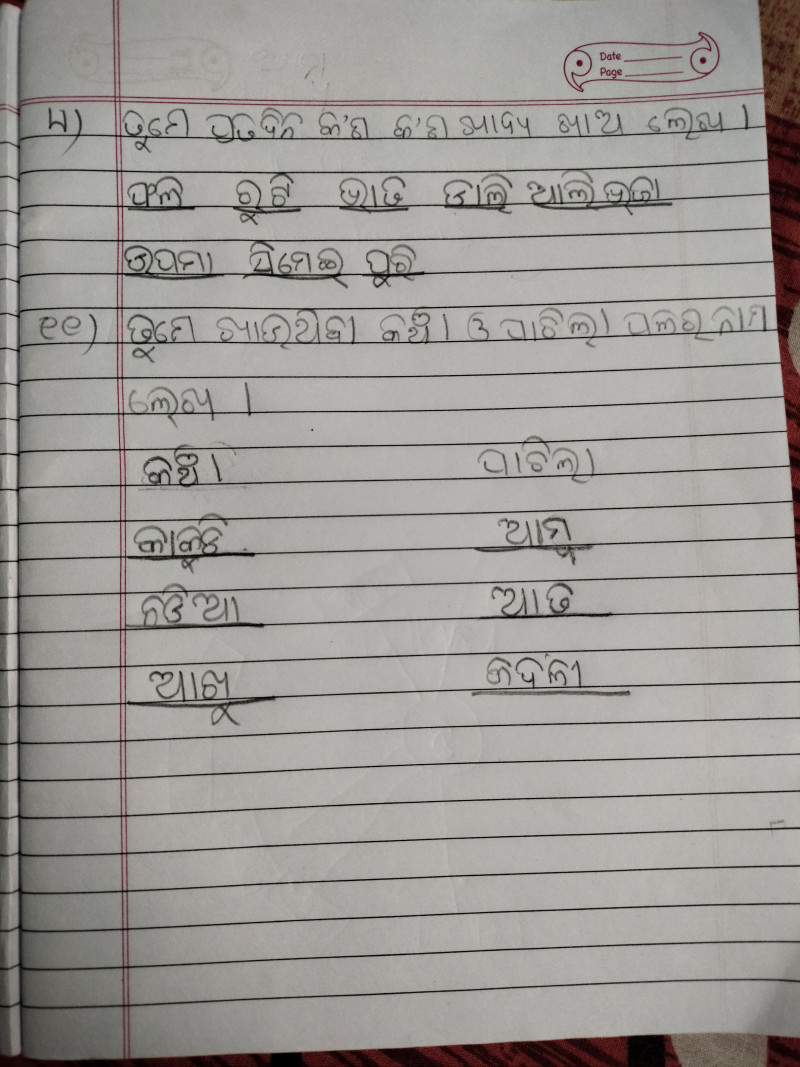 Date
Page
୳) ତୁମେ ପ୍ରତିଦିନ କ'ଣ କ'ଣ ଖାଦ୍ୟ ଖାଅ ଲେଖ ।
ଫଳ ରୁଟି ଭାତ ଡାଲି ଆଳି ଭଜା
ଉପମା ସିମେଇ ପୁରି
୧୧) ତୁମେ ଖାଇଥିବା କଞ୍ଚା ଓ ପାଚିଲା ଫଳର ନାମ
ଲେଖ ।
କଞ୍ଚା ପାଚିଲା
କାକୁଡି ଆମ୍ବ
ନଡିଆ ଆତ
ଆଖୁ କଦଳୀ